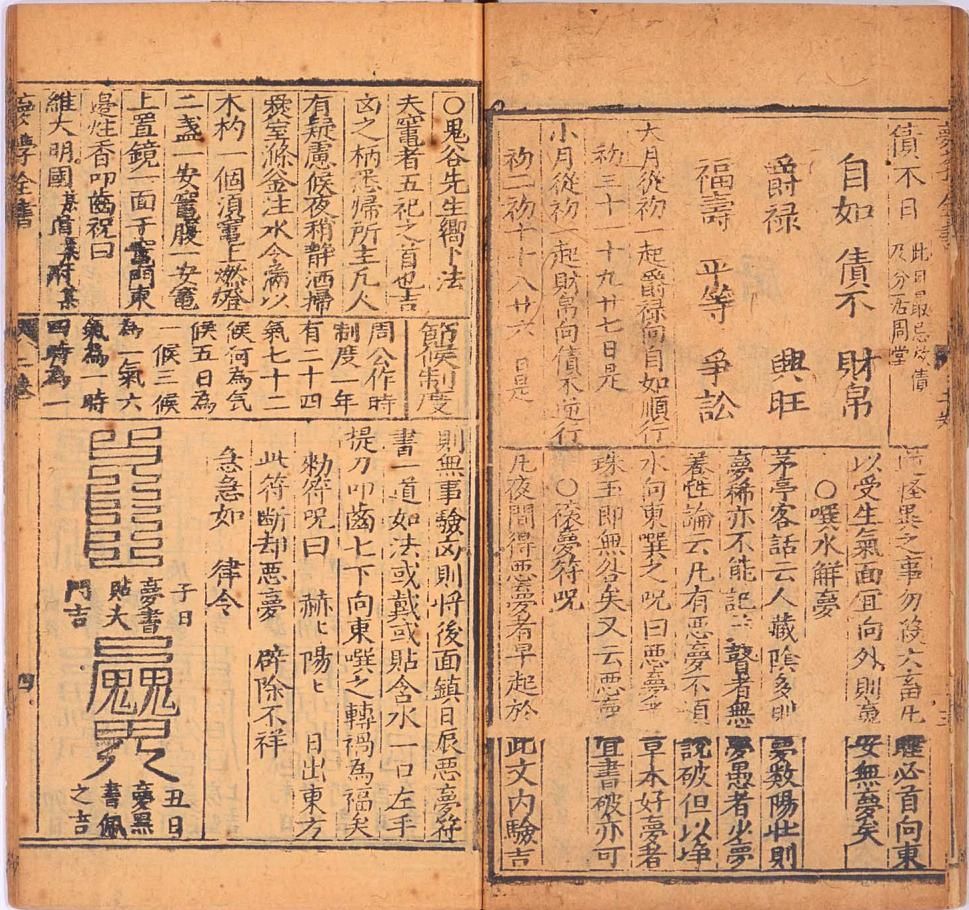 債不日 此日最忌放債
及分居周堂
自如 債不 財帛
爵禄 興旺
福壽 平等 爭訟
大月從初一起爵禄向自如順行
初三十一十九廿七日是
小月從初一起財帛向債不逆行
初二初十十八廿六日是
怪異之事勿殺六畜生睡必首向東
以受生氣面宜向外則魂安無夢矣
○噀水解夢
茅亭客話云人藏陰多則夢数陽壮則
夢稀亦不能記瞽者無夢愚者少夢
養性論云凡有惡夢不須說破但以净
水向東噀之咒曰惡夢草木好夢者
珠玉即無咎矣又云惡夢宜書破亦可
○禳夢符咒
凡夜間得惡夢者早起於此文内驗吉
○鬼谷先生嚮卜法
夫竈者五祀之首也吉
凶之柄悉歸所主凡人
有疑慮候夜稍静洒掃
爨室滌釜注水令滿以
木杓一個頂竈上燃燈
二盞一安竈腹一安竈
上置鏡一面于竈門東
邊炷香叩齒祝曰
維大明國某省某府某
節候制度
周公作時
制度一年
有二十四
氣七十二
候何為気
候五日為
一候三候
為一氣六
氣為一時
四時為一
則無事驗凶則将後面鎮日辰惡夢符
書一道如法或戴或貼含水一口左手
提刀叩齒七下向東噀之轉禍為福矣
勅符咒曰 赫〻陽〻 日出東方
此符断却惡夢 辟除不祥
急急如 律令
子日
夢書
貼大
門吉
丑日
夢黑
書佩
之吉
夢學全書 二卷 四